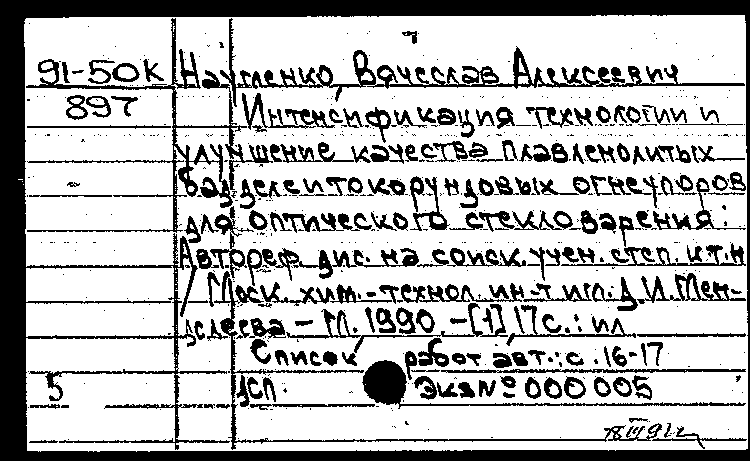 91-50К Науменко, Вячеслав Алексеевич
897 Интенсификация технологии и
улучшение качества плавленолитых
бадделеитокорундовых огнеупоров
для оптического стекловарения:
Автореф. дис. на соиск. учен. степ. к.т.н
/ Моск. хим.-технол. ин-т им. Д.И. Мен-
делеева. – М. 1990. – [1] 17с.: ил
Список работ авт.: с. 16-17
5 ДСП. Экз № 000 005